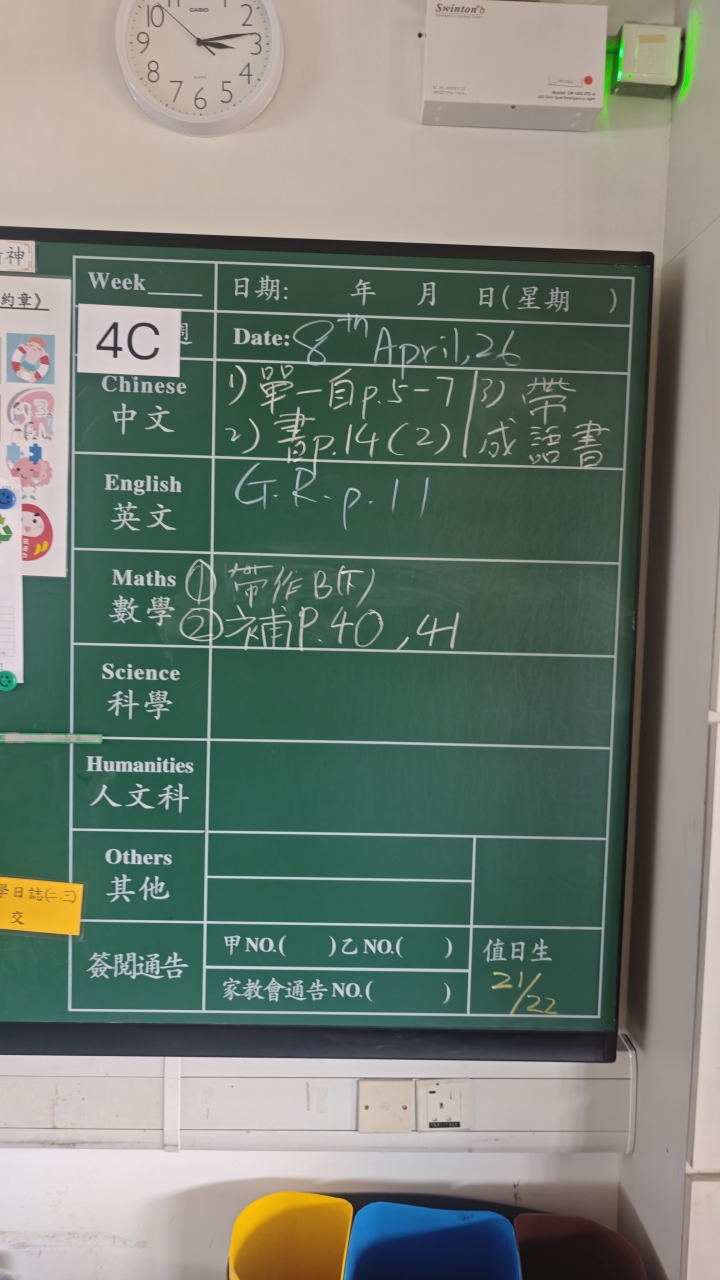 10 2
9 3
8 4
7 6 5
CASIO
QUARTZ
Swinton
Emergency Lighting System
神
約章》
Week____ 日期: 年 月 日(星期 )
4C 週 Date: 8th April, 26
Chinese
中文
1) 單一自p.5-7
2) 書p.14(2)
3) 帶
成語書
English
英文
G.R. p.11
Maths
數學
① 帶作B(下)
② 補P.40, 41
Science
科學
Humanities
人文科
Others
其他
學日誌(二.三)
交
簽閱通告
甲NO.( )乙NO.( )
家教會通告NO.( )
值日生
21/22